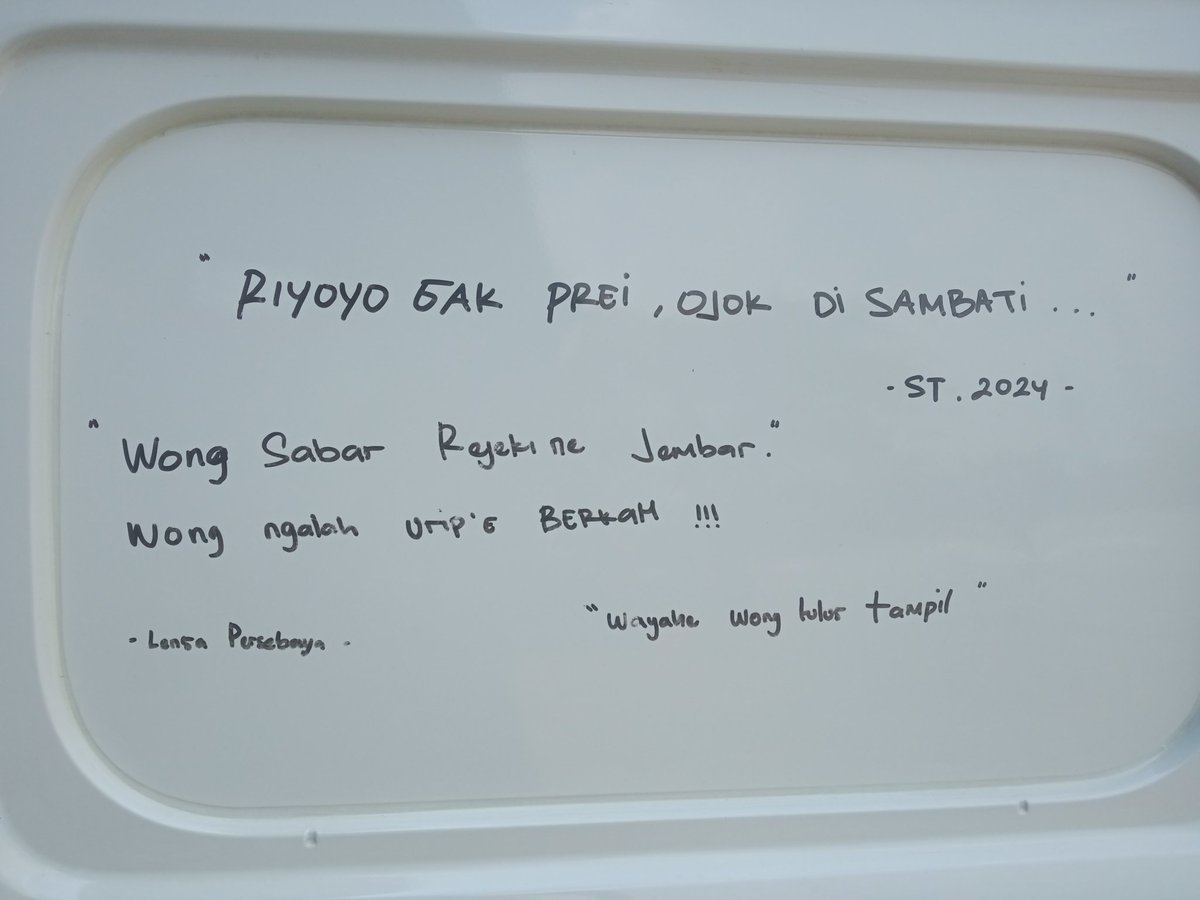 " RIYOYO GAK PREI, OJOK DI SAMBATI... "
- ST. 2024 -
" Wong Sabar Rejeki ne Jembar."
Wong ngalah urip'e BERKAH !!!
"Wayahe wong lulur tampil"
- Lensa Persebaya -